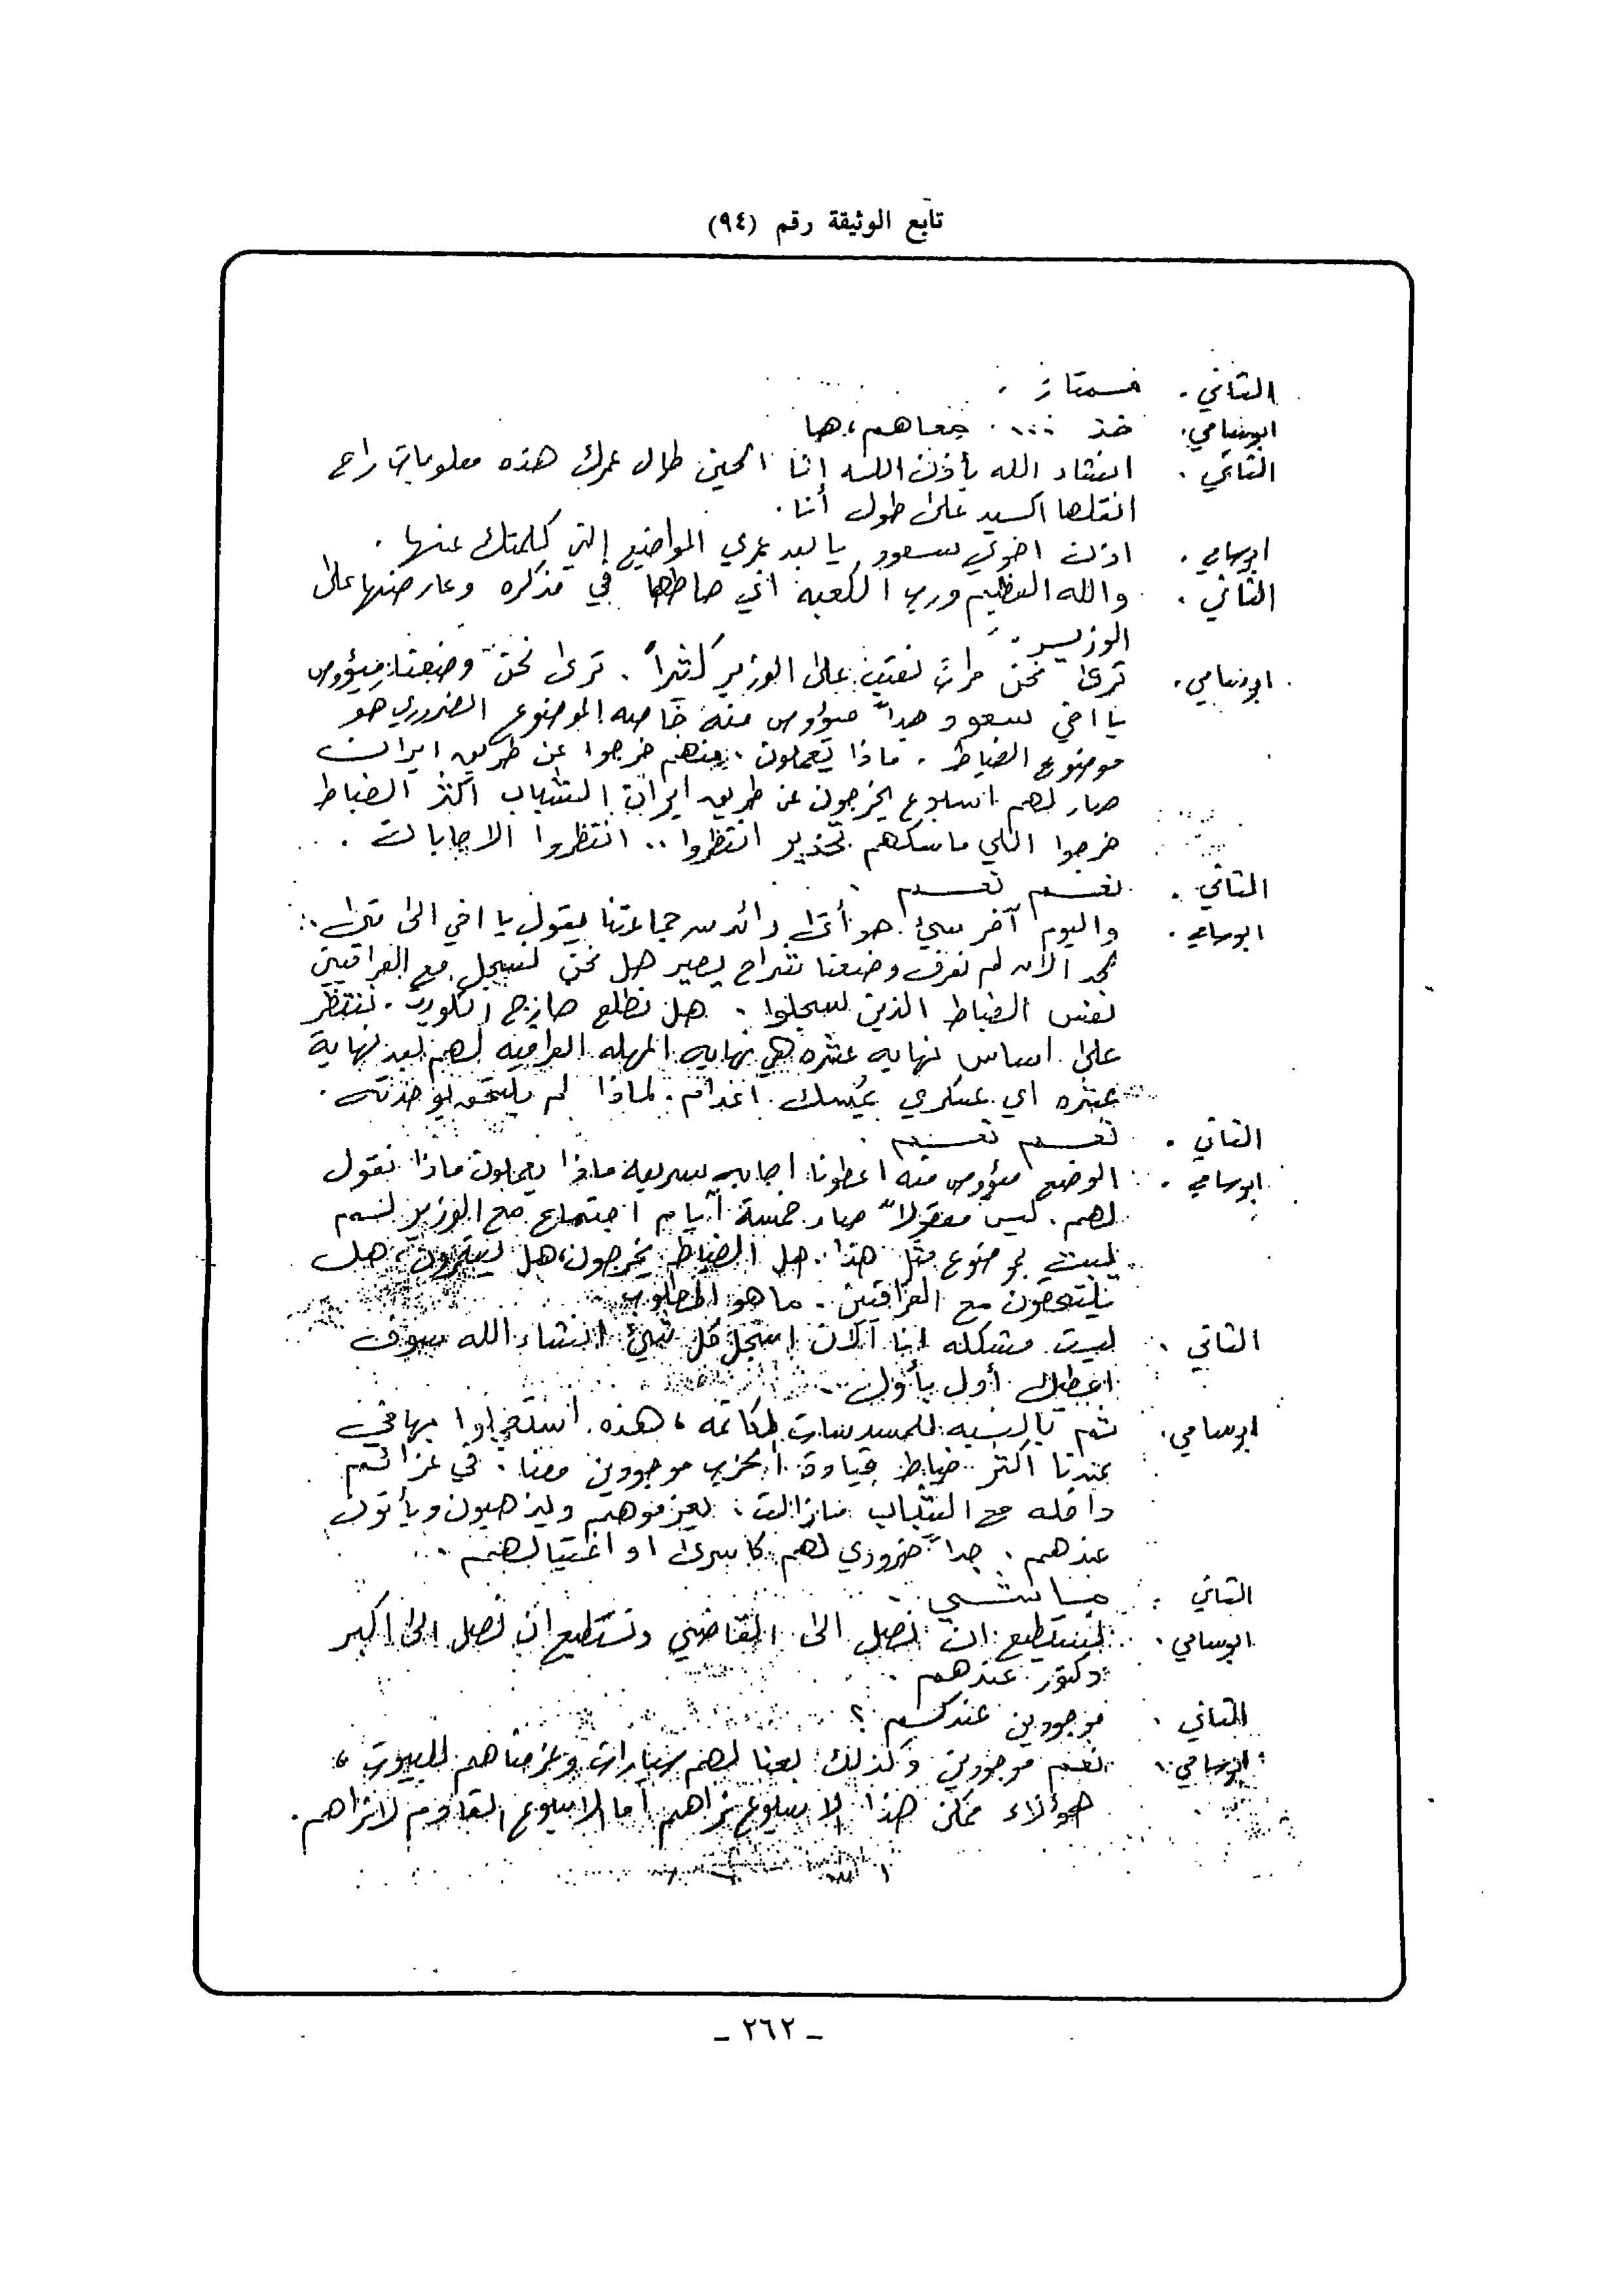 تابع الوثيقة رقم (٩٤)
الثاني . ممتاز .
ابوسامي . خذ .... جمعاهم ، ها
الثاني . انشاء الله بأذن الله انا الحين طال عمرك هذه معلومات راح
انقلها السيد على طول أنا .
ابوسامي . اذن اخوي سعود يا بعد عمري المواضيع التي كلمتك عنها .
الثاني . والله العظيم ورب الكعبه اني حاطها في مذكره وعارضها على
الوزير .
ابوسامي . ترى نحن مرات نعتب على الوزير كثيراً . ترى نحن وضعنا ميؤوس
يا اخي سعود جداً ميؤوس منه خاصه الموضوع الضروري هو
موضوع الضباط . ماذا يعملون . منهم خرجوا عن طريق ايران
صار لهم اسبوع يخرجون عن طريق ايران الشباب اكثر الضباط
خرجوا اللي ماسكهم تحذير انتظروا .. انتظروا الاجابات .
الثاني . نعم نعم .
ابوسامي . واليوم آخر شيء هو أتى رائد من جماعتنا يقول يا اخي الى متى .
لحد الآن لم نعرف وضعنا شراح يصير هل نحن نسجل مع العراقيين
نفس الضباط الذين سجلوا . هل نطلع خارج الكويت . ننتظر
على اساس نهايه عشره هي نهايه المهله العراقيه لهم بعد نهاية
عشره اي عسكري يمسك اعدام . لماذا لم يلتحق بوحدته .
الثاني . نعم نعم .
ابوسامي . الوضع ميؤوس منه اعطونا اجابه سريعه ماذا يعملون ماذا نقول
لهم . ليس معقولاً صار خمسة أيام اجتماع مع الوزير لسم
يبت بموضوع مثل هذا . هل الضباط يخرجون ، هل يستمرون ، هل
يلتحقون مع العراقيين . ما هو المطلوب .
الثاني . ليست مشكله انا الآن اسجل كل شيء انشاء الله سوف
اعطيك أول بأول .
ابوسامي . ثم بالنسبه للمسدسات الكاتمه ، هذه استعجلوا بها في
عندنا اكثر ضباط قيادة الحزب موجودين معنا . في عزائم
داخله مع الشباب مازالت ، يعزموهم ويذهبون ويأتون
عندهم . جداً ضروري لهم كأسرى او اغتيالهم .
الثاني . ماشي .
ابوسامي . نستطيع ان نصل الى القاضي ونستطيع ان نصل الى اكبر
دكتور عندهم .
الثاني . موجودين عندكم ؟
ابوسامي . نعم موجودين وكذلك بعنا لهم سيارات وعزمناهم للبيوت ،
هؤلاء ممكن هذا الاسبوع نراهم أما الاسبوع القادم لا نراهم .
ـ ٢٦٢ ـ